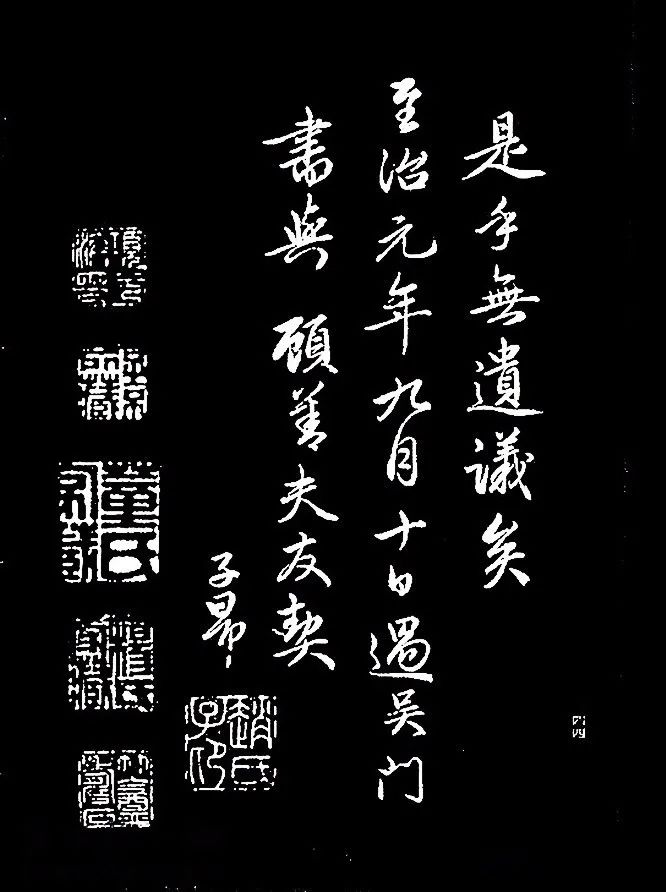 是乎無遺議矣
至治元年九月十日過吴門
書與 顧善夫友契
子昂
趙氏子昂
四四